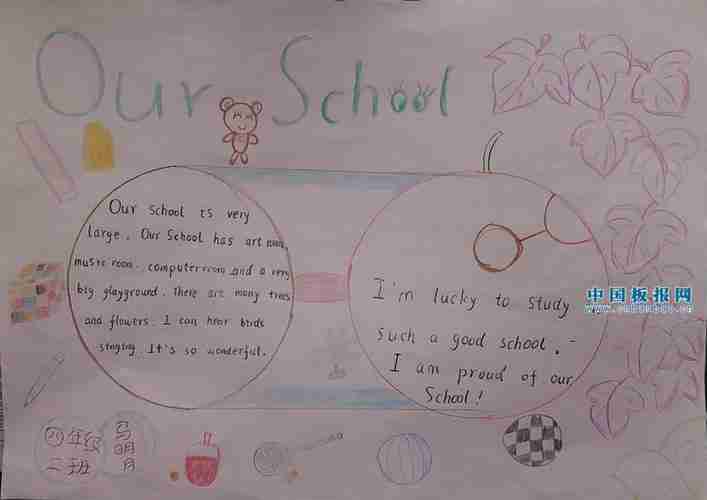 Our School
Our School is very
large. Our School has art room,
music room, computer room and a very
big playground. There are many trees
and flowers. I can hear birds
singing. It's so wonderful.
I'm lucky to study
such a good school.
I am proud of our
School!
中国板报网
年级
二班
马明月